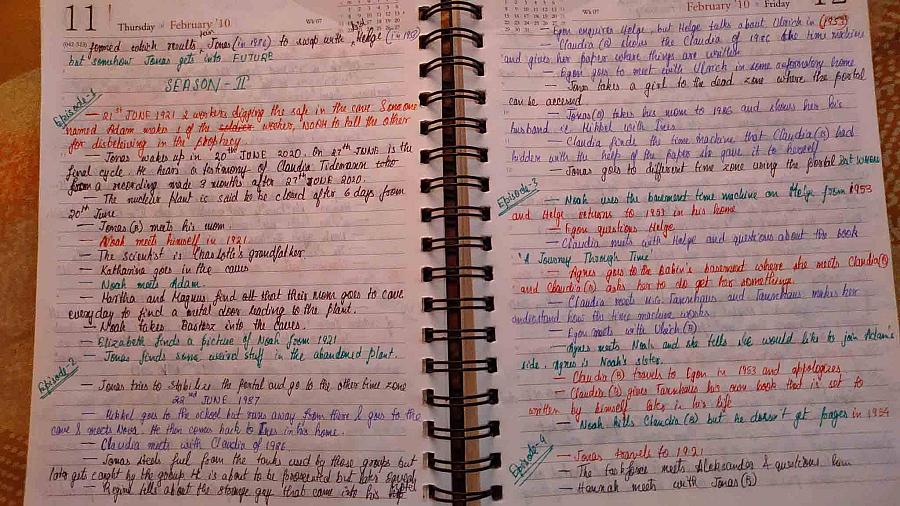 11 Thursday February '10 Wk 07
(042-323) formed which results Jonas (in 1986) to swap with Helge (in 1953)
but somehow Jonas gets into FUTURE
SEASON - II
Episode-1
— 21st JUNE 1921 2 workers digging the safe in the cave. Someone
named Adam makes 1 of the worker, NOAH to kill the other
for disbelieving in the prophecy
— Jonas wakes up in 20th JUNE 2020. On 27th JUNE is the
final cycle. He hears a testimony of Claudia Tidemann
from a recording made 3 months after 27th JUNE 2020.
— The nuclear plant is said to be closed after 6 days from
20th June
— Jonas(A) meets his mom.
— Noah meets himself in 1921.
— The scientist is Charlotte's grandfather
— Katharina goes in the caves
— Noah meets Adam.
— Martha and Magnus find that their mom goes to cave
everyday to find a metal door leading to the plant.
— Noah takes Bartosz into the caves.
— Elizabeth finds a picture of Noah from 1921
— Jonas finds some weird stuff in the abandoned plant.
Episode-2
— Jonas tries to stabilize the portal and go to the other time zone
22nd JUNE 1987
— Mikkel goes to the school but runs away from there & goes to the
cave & meets Noah. He then comes back to Ines in his home.
— Claudia meets with Claudia of 1986
— Jonas steals fuel from the tanks used by those groups but
later gets caught by the group. He is about to be but
— Regina tells about the strange guy that came into his hotel
12 February '10 Friday
— Egon enquires Helge, but Helge talks about Ulrich in (1953)
— Claudia (A) shows the Claudia of 1986 the time machine
and gives her paper where things are written
— Egon goes to meet with Ulrich in some reformatory home
— Jonas takes a girl to the dead zone where the portal
can be accessed
— Jonas(A) takes his mom to 1986 and shows her his
husband ie Mikkel with Ines
— Claudia finds the time machine that Claudia(A) had
hidden with the help of the paper she gave it to herself
— Jonas goes to different time zone using the portal but where
Episode-3
— Noah uses the basement time machine on Helge from 1953
and Helge returns to 1953 in his home
— Egon questions Helge
— Claudia meets with Helge and questions about the book
'A Journey Through Time'
— Agnes goes to the cabin's basement where she meets Claudia(A)
and Claudia(A) asks her to do get her something
— Claudia meets with Tannhaus and Tannhaus makes her
understand how the time machine works
— Egon meets with Ulrich(A)
— Agnes meets Noah and she tells she would like to join Adam's
side. Agnes is Noah's sister.
— Claudia (A) travels to Egon in 1953 and appologizes
— Claudia (A) gives Tannhaus his own book that is set to
written by himself later in his life
— Noah kills Claudia (A) but he doesn't get pages in 1954
Episode-4
— Jonas travels to 1921
— The taskforce meets Aleksander & questions him
— Hannah meets with Jonas(A)